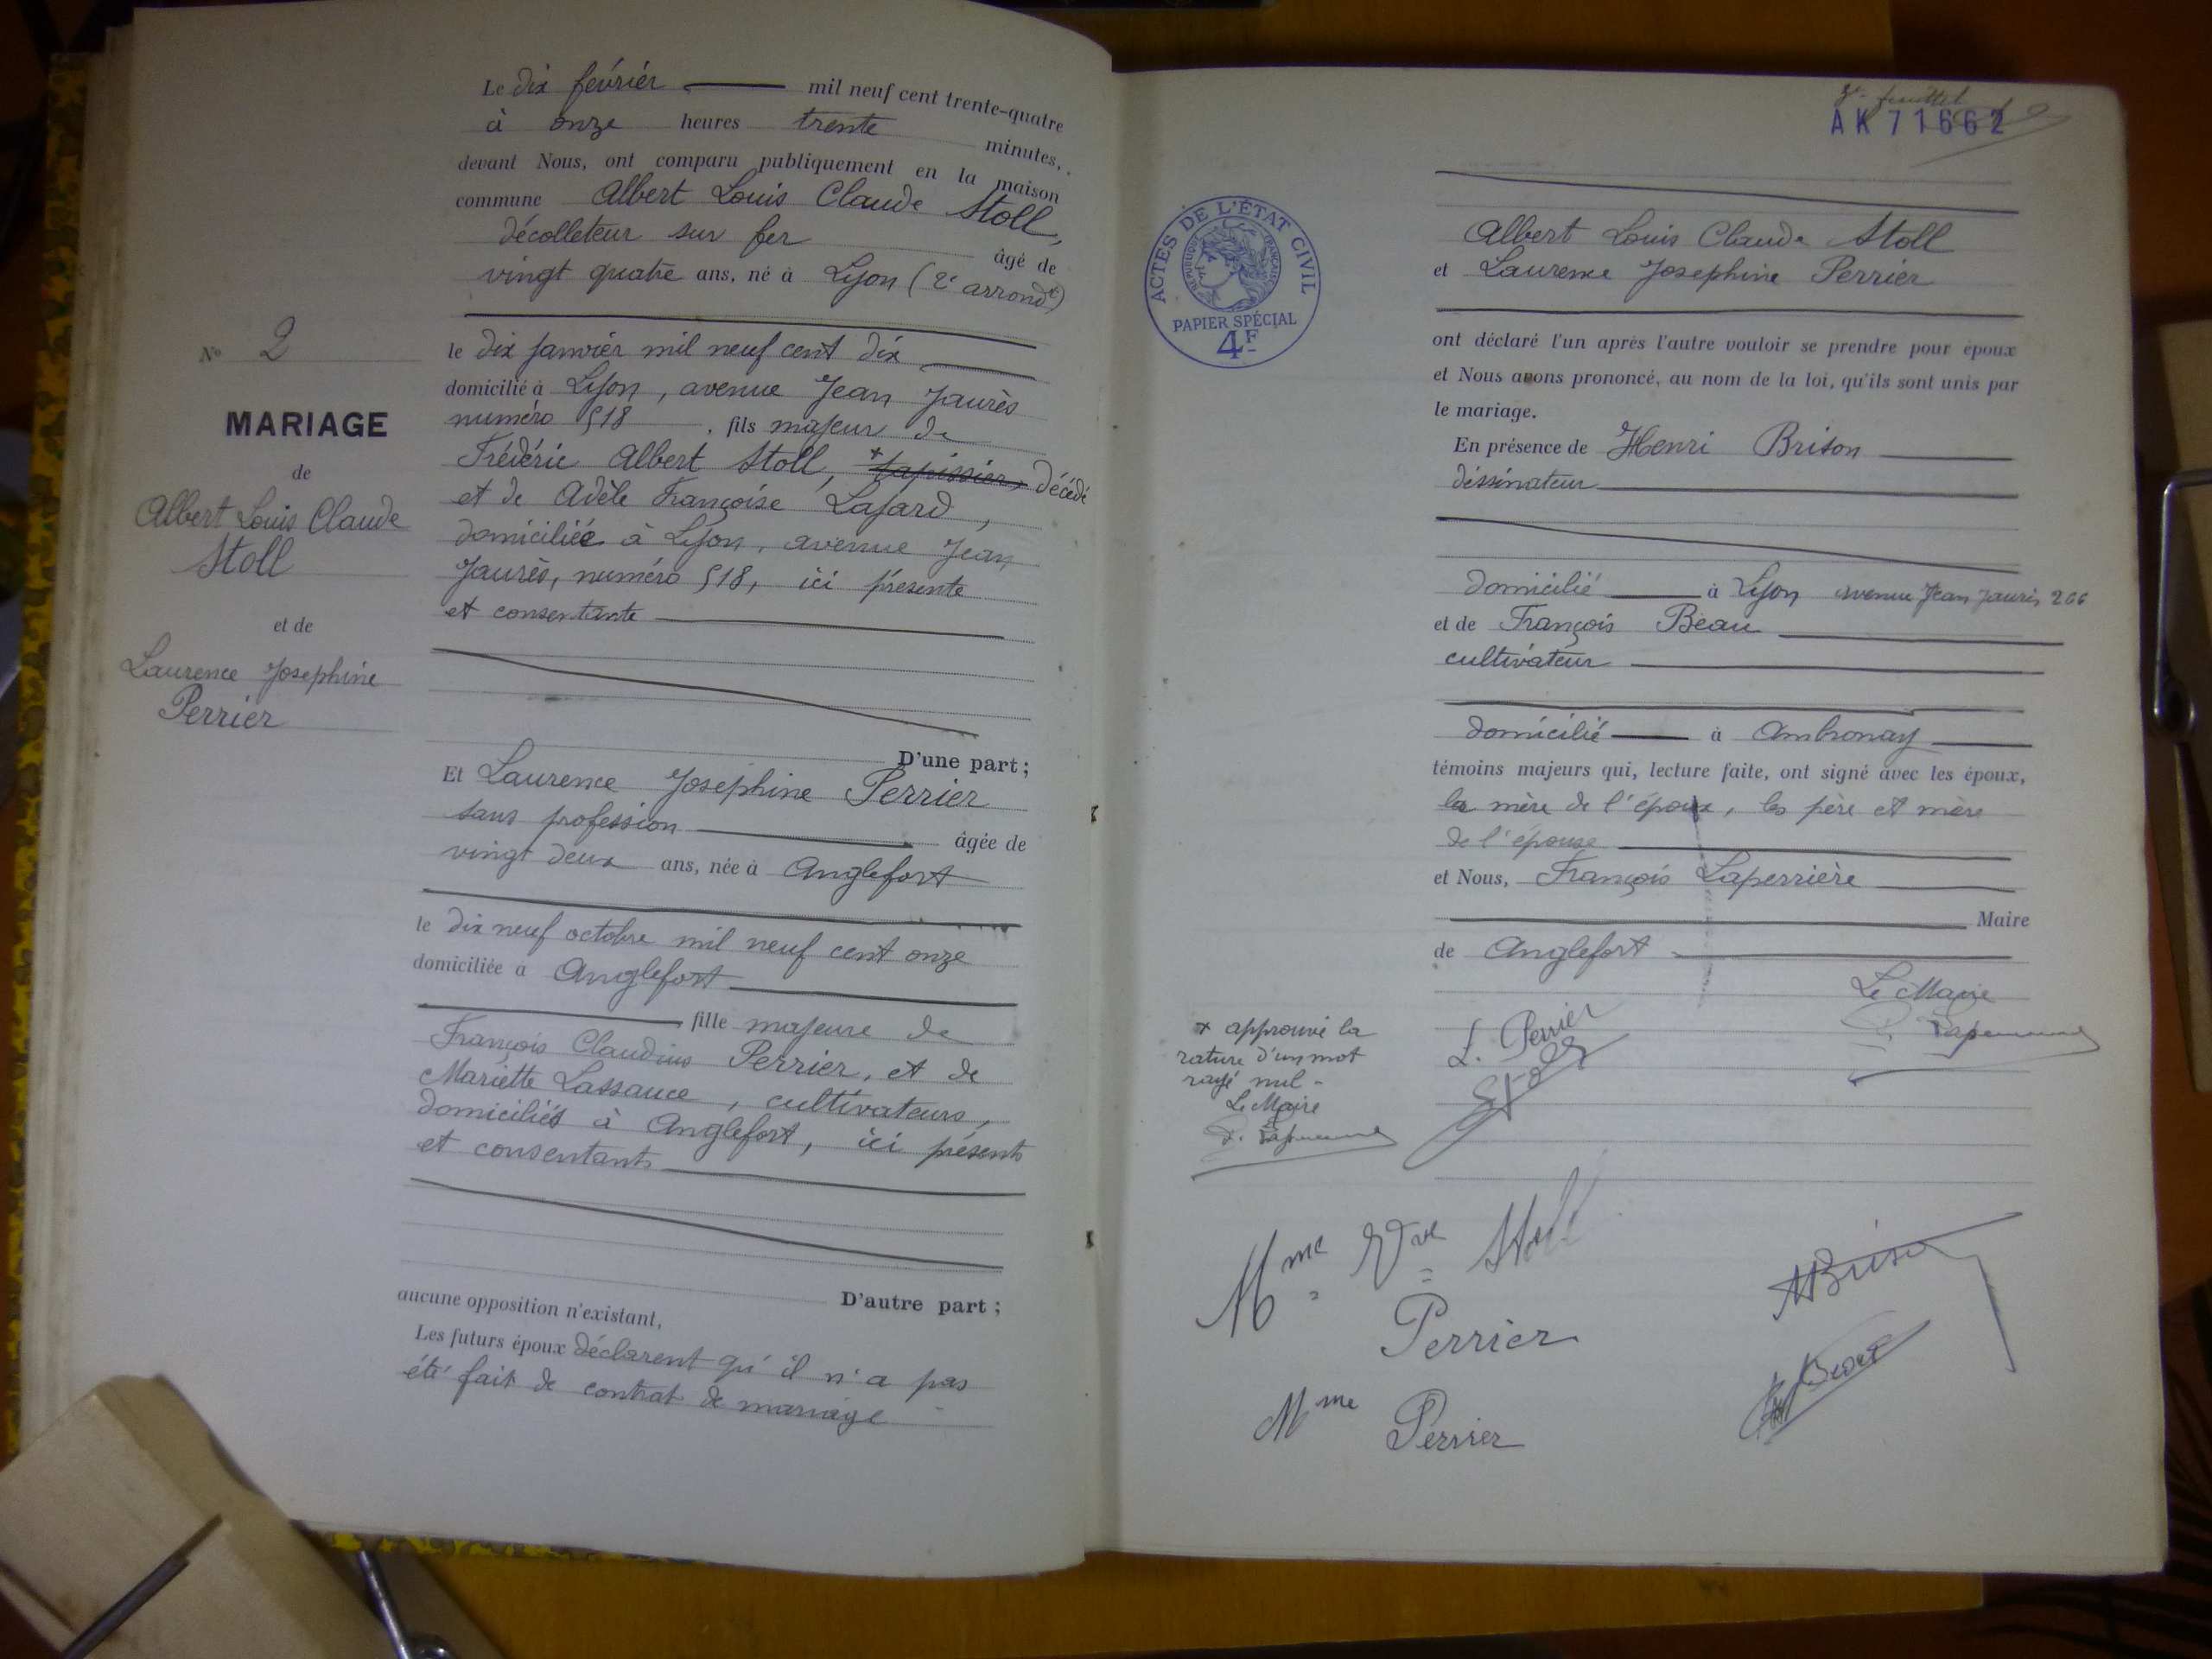 Le dix février mil neuf cent trente-quatre
à onze heures trente minutes,
devant Nous, ont comparu publiquement en la maison
commune Albert Louis Claude Stoll,
décolleteur sur fer âgé de
vingt quatre ans, né à Lyon (2e arrondt)
le dix janvier mil neuf cent dix
domicilié à Lyon, avenue Jean Jaurès
numéro 518, fils majeur de
Frédéric Albert Stoll, * tapissier, décédé
et de Adèle Françoise Lafard,
domiciliée à Lyon, avenue Jean
Jaurès, numéro 518, ici présente
et consentante
D'une part;
Et Laurence Josephine Perrier
sans profession âgée de
vingt deux ans, née à Anglefort
le dix neuf octobre mil neuf cent onze
domiciliée à Anglefort
fille majeure de
François Claudius Perrier, et de
Mariette Lassauce, cultivateurs,
domiciliés à Anglefort, ici présents
et consentants
D'autre part;
aucune opposition n'existant,
Les futurs époux déclarent qu'il n'a pas
été fait de contrat de mariage
No 2
MARIAGE
de
Albert Louis Claude
Stoll
et de
Laurence Josephine
Perrier
AK 71662
ACTES DE L'ÉTAT CIVIL
RÉPUBLIQUE FRANÇAISE
PAPIER SPÉCIAL
4F
Albert Louis Claude Stoll
et Laurence Josephine Perrier
ont déclaré l'un après l'autre vouloir se prendre pour époux
et Nous avons prononcé, au nom de la loi, qu'ils sont unis par
le mariage.
En présence de Henri Brison
déssinateur
domicilié à Lyon avenue Jean Jaurès 266
et de François Béau
cultivateur
domicilié à Ambronay
témoins majeurs qui, lecture faite, ont signé avec les époux,
la mère de l'époux, les père et mère
de l'épouse
et Nous, François Laperrière
Maire
de Anglefort
Le Maire
* approuvé la
rature d'un mot
rayé nul -
Le Maire
L. Perrier
Stoll
Mme Vve Stoll
Perrier
Mme Perrier
HBrison
Beau